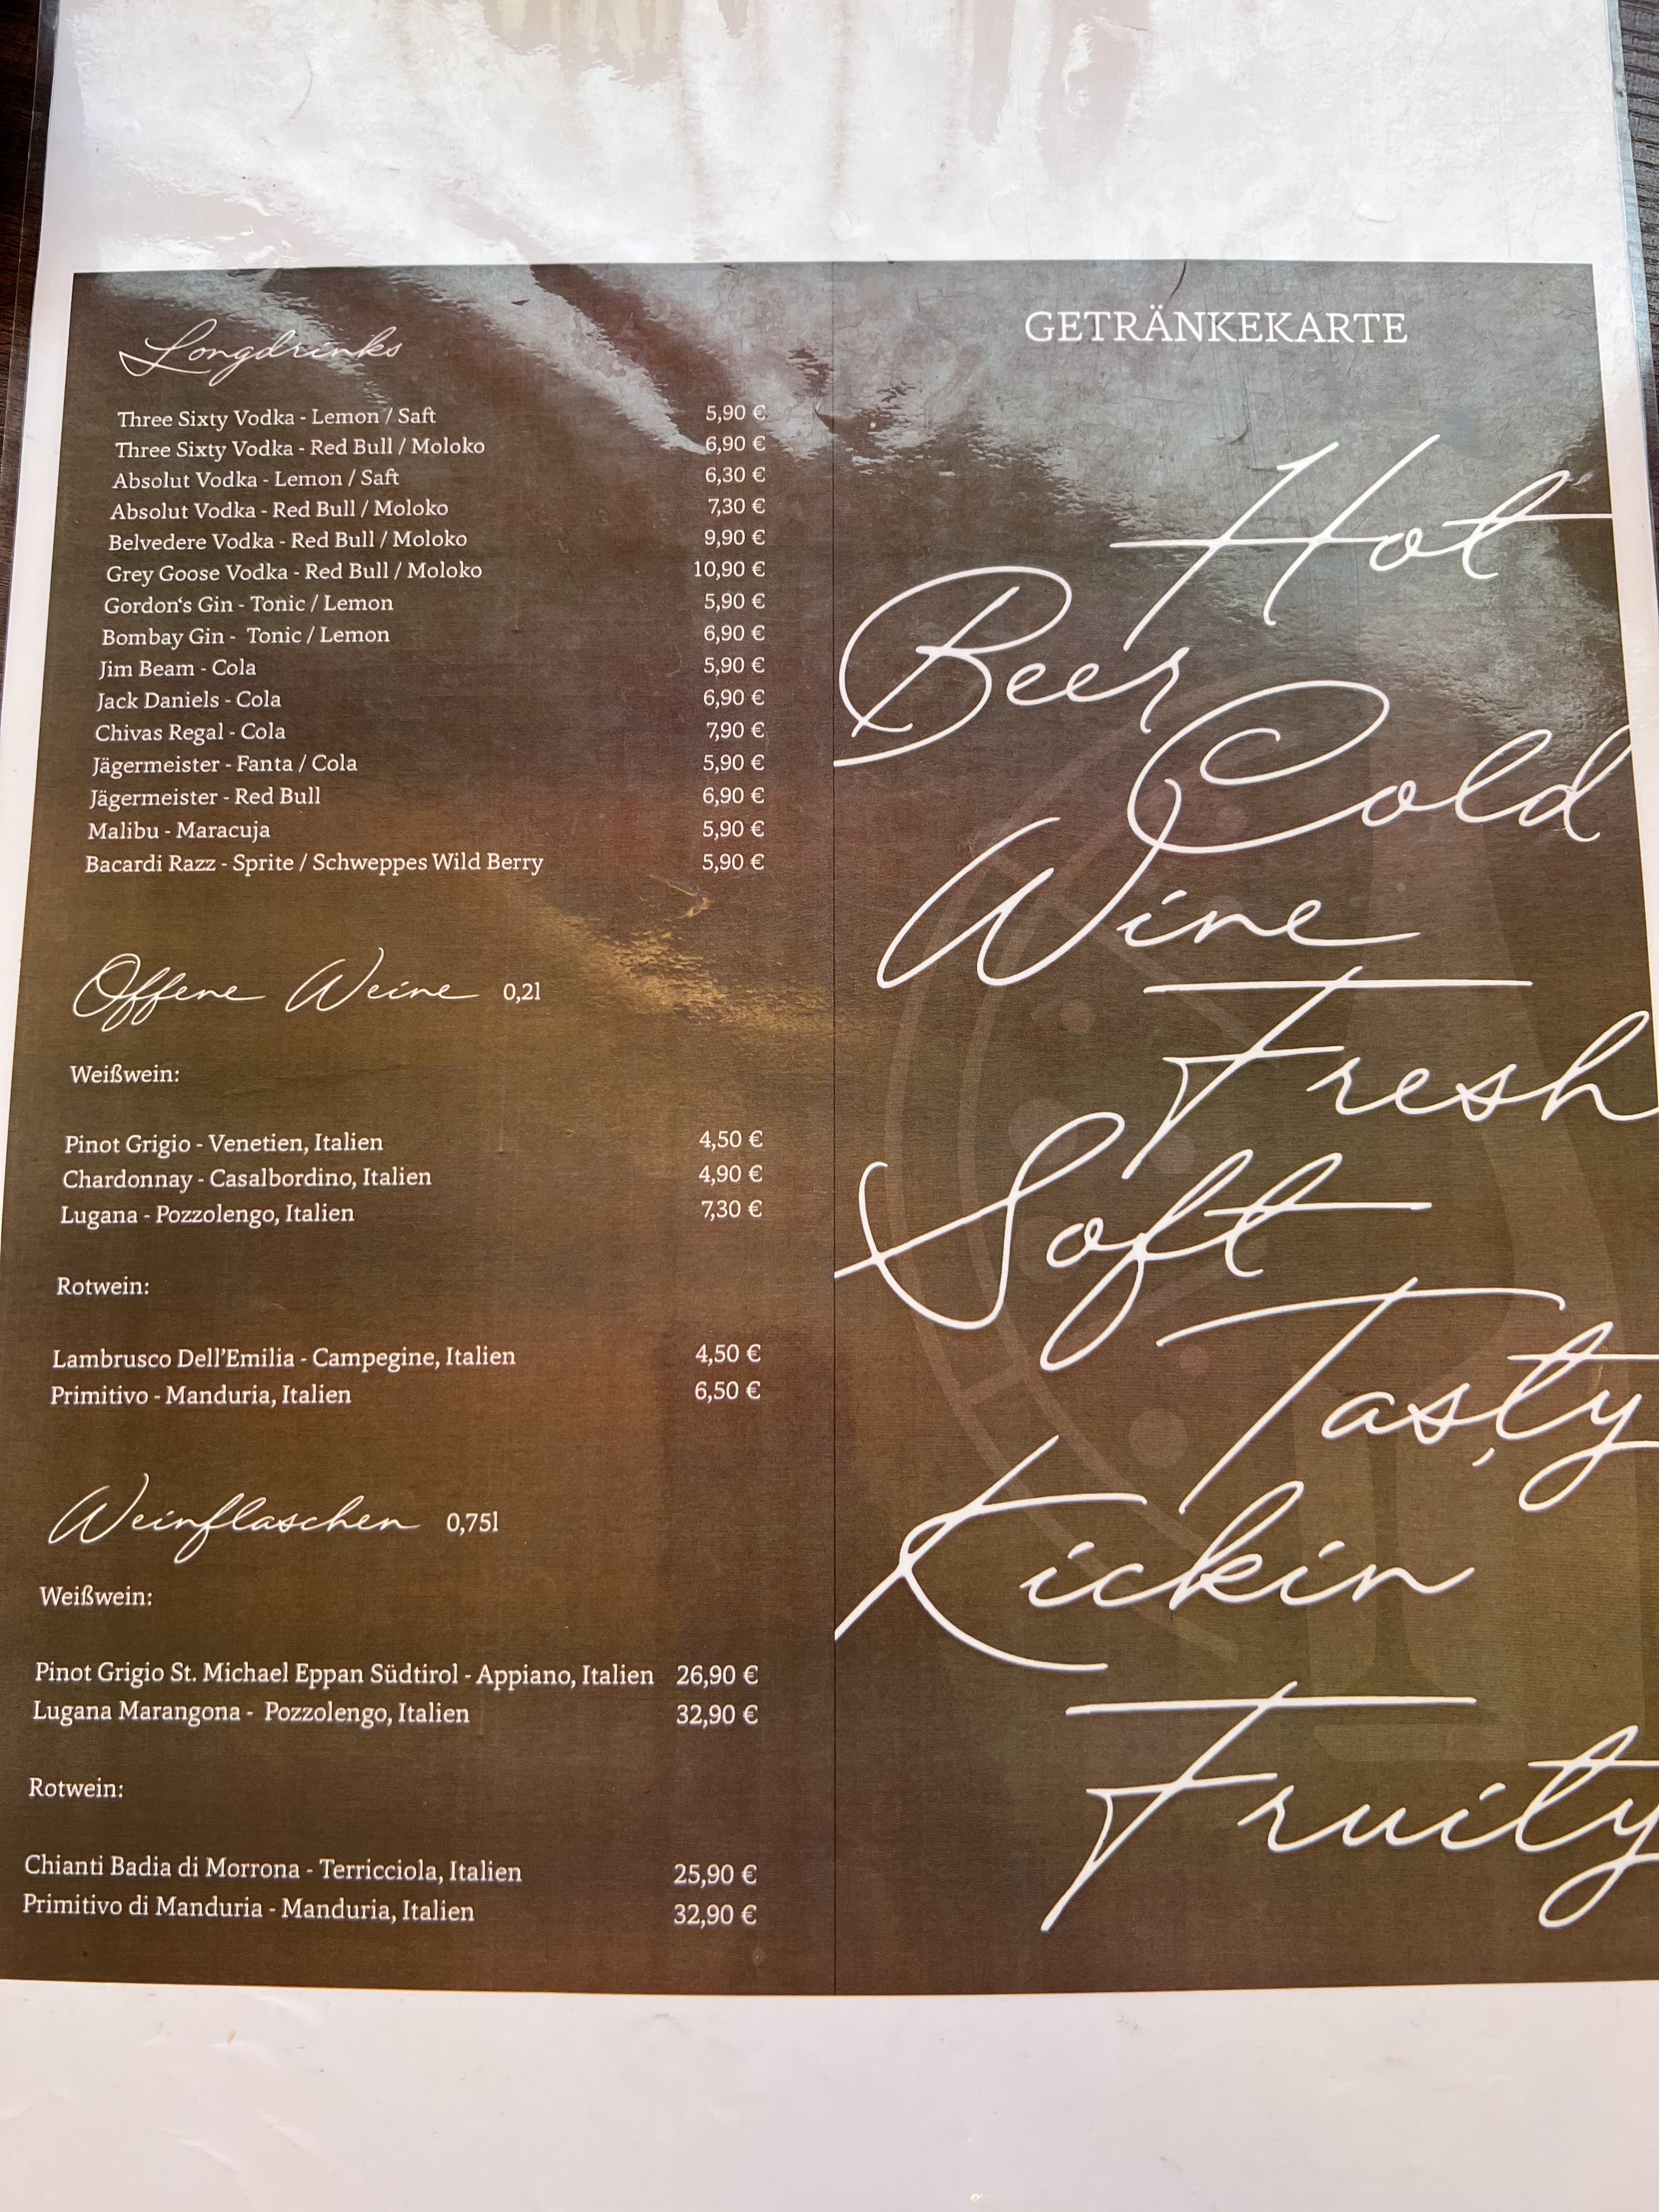 Longdrinks
Three Sixty Vodka - Lemon / Saft 5,90 €
Three Sixty Vodka - Red Bull / Moloko 6,90 €
Absolut Vodka - Lemon / Saft 6,30 €
Absolut Vodka - Red Bull / Moloko 7,30 €
Belvedere Vodka - Red Bull / Moloko 9,90 €
Grey Goose Vodka - Red Bull / Moloko 10,90 €
Gordon‘s Gin - Tonic / Lemon 5,90 €
Bombay Gin - Tonic / Lemon 6,90 €
Jim Beam - Cola 5,90 €
Jack Daniels - Cola 6,90 €
Chivas Regal - Cola 7,90 €
Jägermeister - Fanta / Cola 5,90 €
Jägermeister - Red Bull 6,90 €
Malibu - Maracuja 5,90 €
Bacardi Razz - Sprite / Schweppes Wild Berry 5,90 €
Offene Weine 0,2l
Weißwein:
Pinot Grigio - Venetien, Italien 4,50 €
Chardonnay - Casalbordino, Italien 4,90 €
Lugana - Pozzolengo, Italien 7,30 €
Rotwein:
Lambrusco Dell’Emilia - Campegine, Italien 4,50 €
Primitivo - Manduria, Italien 6,50 €
Weinflaschen 0,75l
Weißwein:
Pinot Grigio St. Michael Eppan Südtirol - Appiano, Italien 26,90 €
Lugana Marangona - Pozzolengo, Italien 32,90 €
Rotwein:
Chianti Badia di Morrona - Terricciola, Italien 25,90 €
Primitivo di Manduria - Manduria, Italien 32,90 €
GETRÄNKEKARTE
Hot
Beer
Cold
Wine
Fresh
Soft
Tasty
Kickin
Fruity